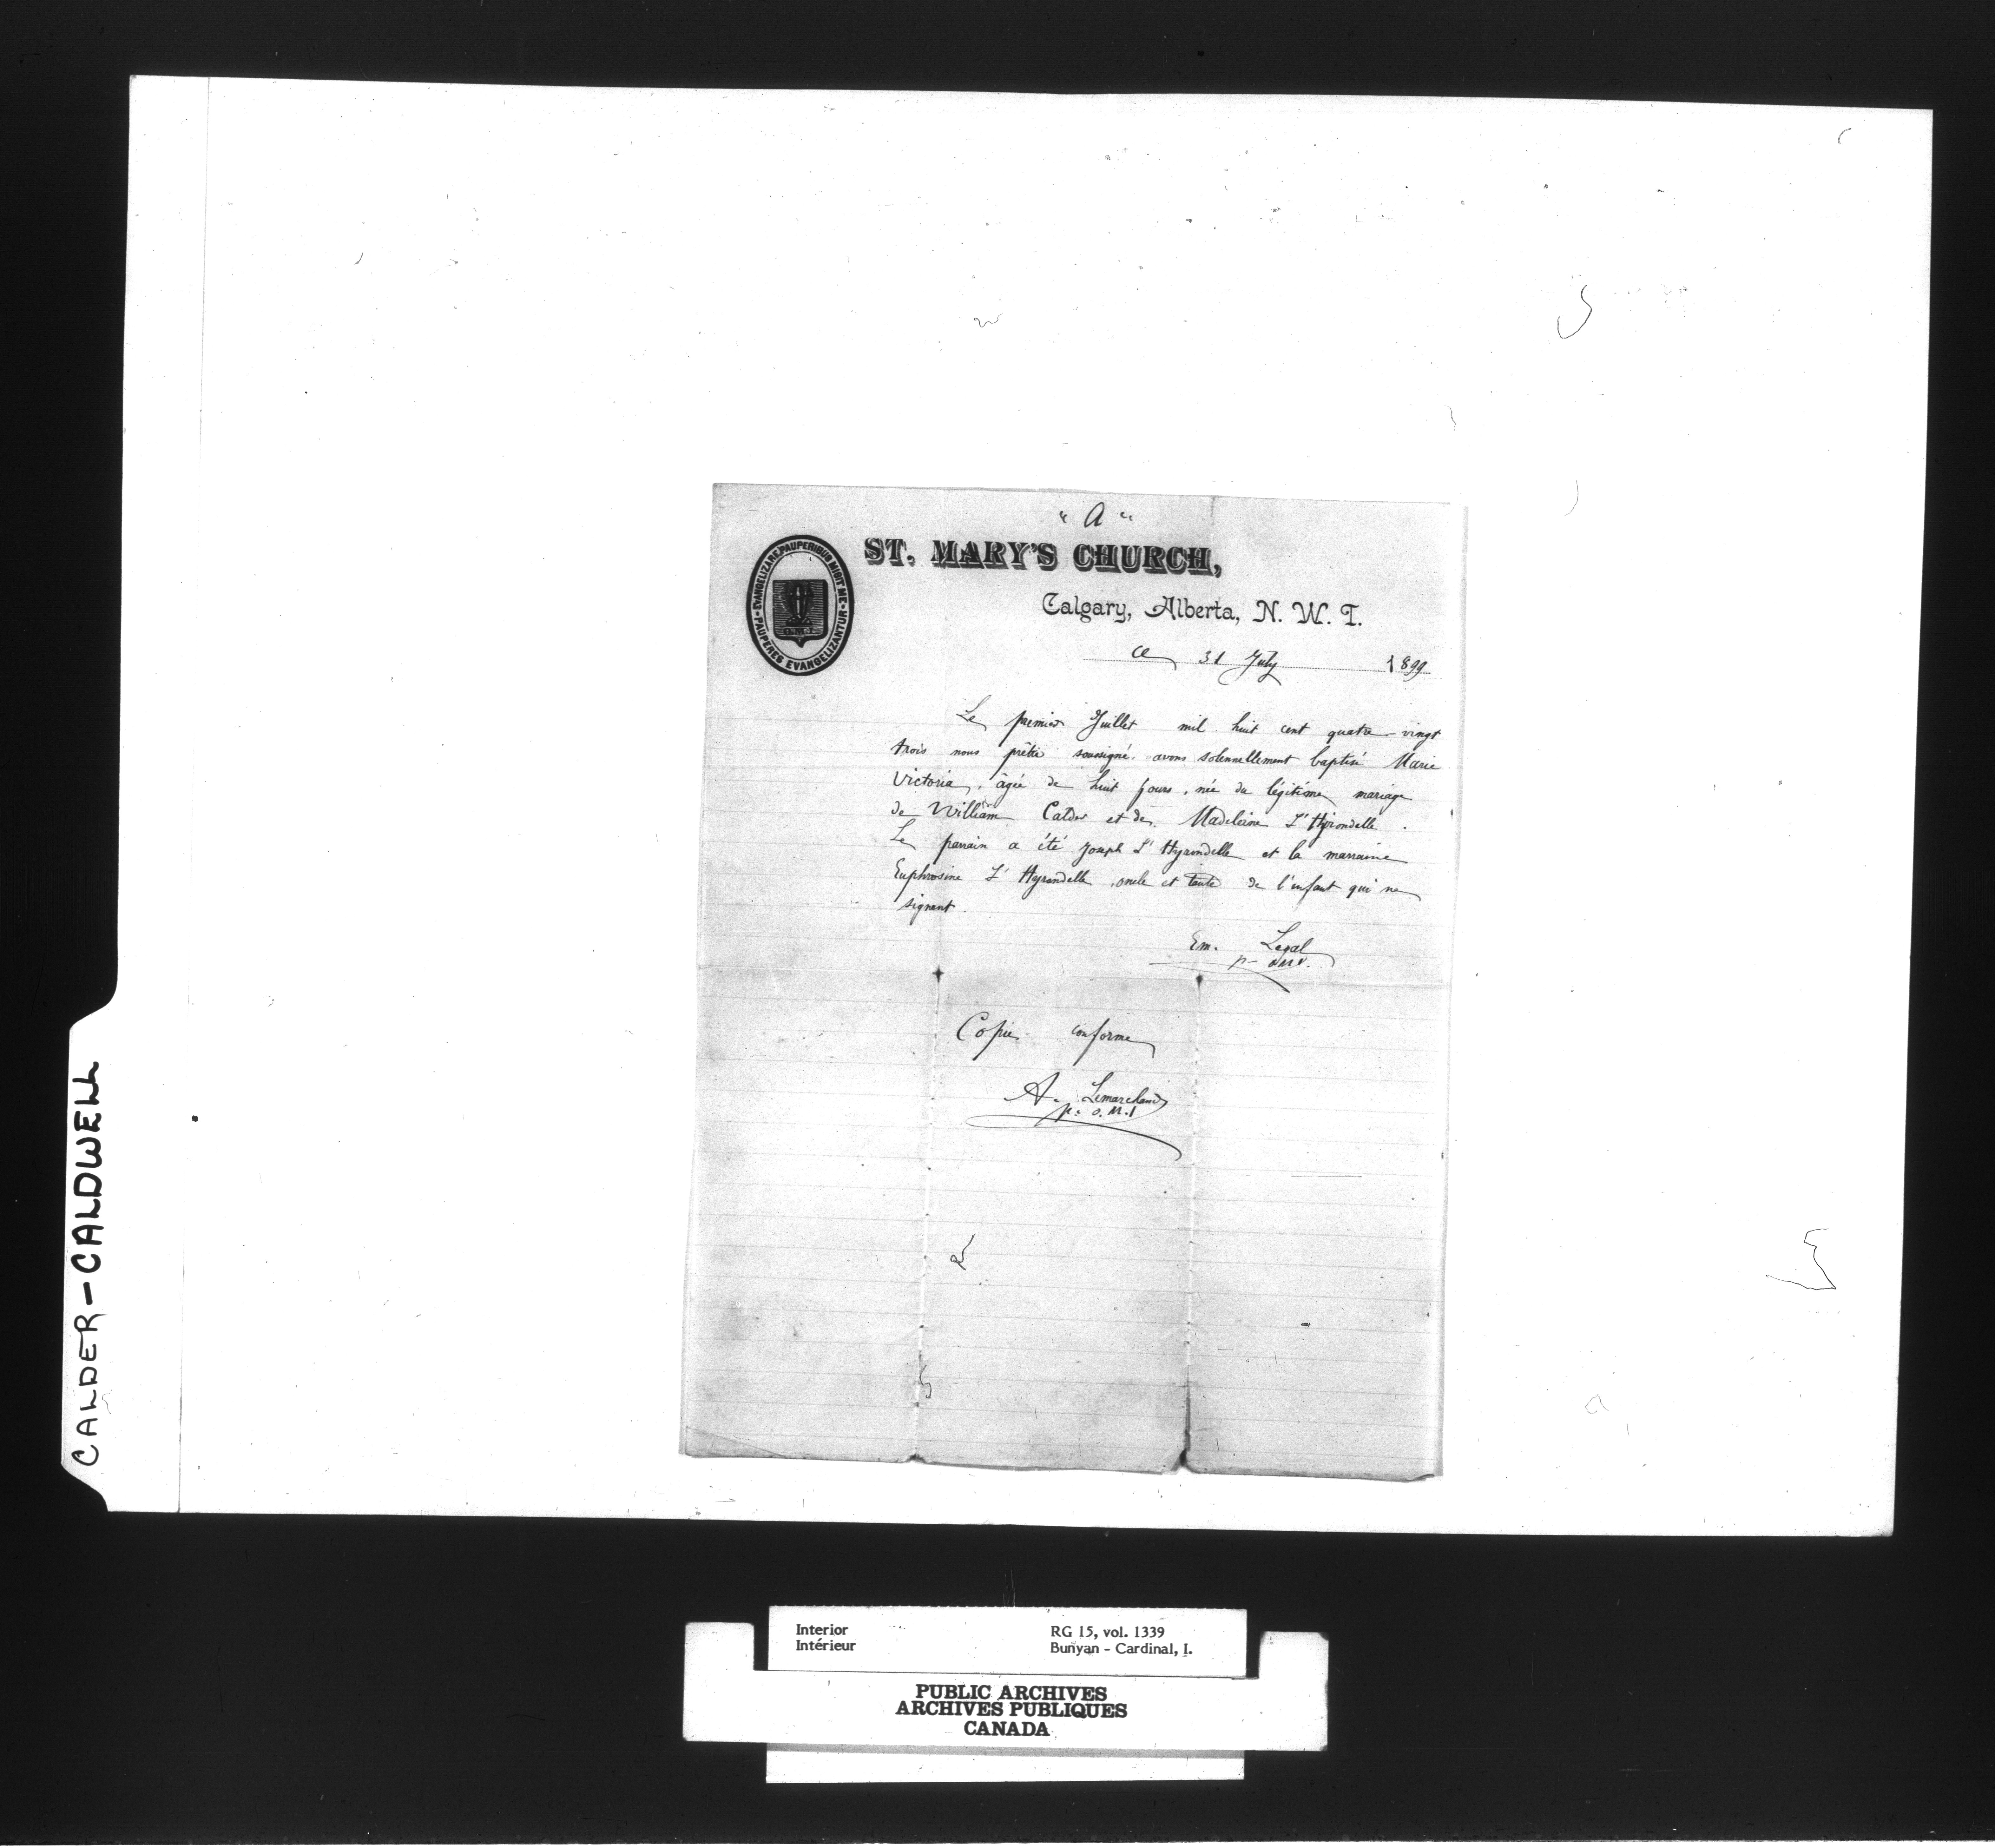 " A "
EVANGELIZARE PAUPERIBUS MISIT ME - PAUPERES EVANGELIZANTUR -
ST. MARY'S CHURCH,
Calgary, Alberta, N. W. T.
Ce 31 July 1899
Le premier Juillet mil huit cent quatre-vingt
trois nous prêtre soussigné avons solennellement baptisé Marie
Victoria, âgée de huit jours, née du légitime mariage
de William Calder et de Madeleine L'Hyrondelle.
Le parrain a été Joseph L'Hyrondelle et la marraine
Euphrosine L'Hyrondelle, oncle et tante de l'enfant qui ne
signent.
Em. Legal
p- omi.
Copie conforme
A. Lemarchand
p. o.m.i
CALDER-CALDWELL
Interior RG 15, vol. 1339
Intérieur Bunyan - Cardinal, I.
PUBLIC ARCHIVES
ARCHIVES PUBLIQUES
CANADA